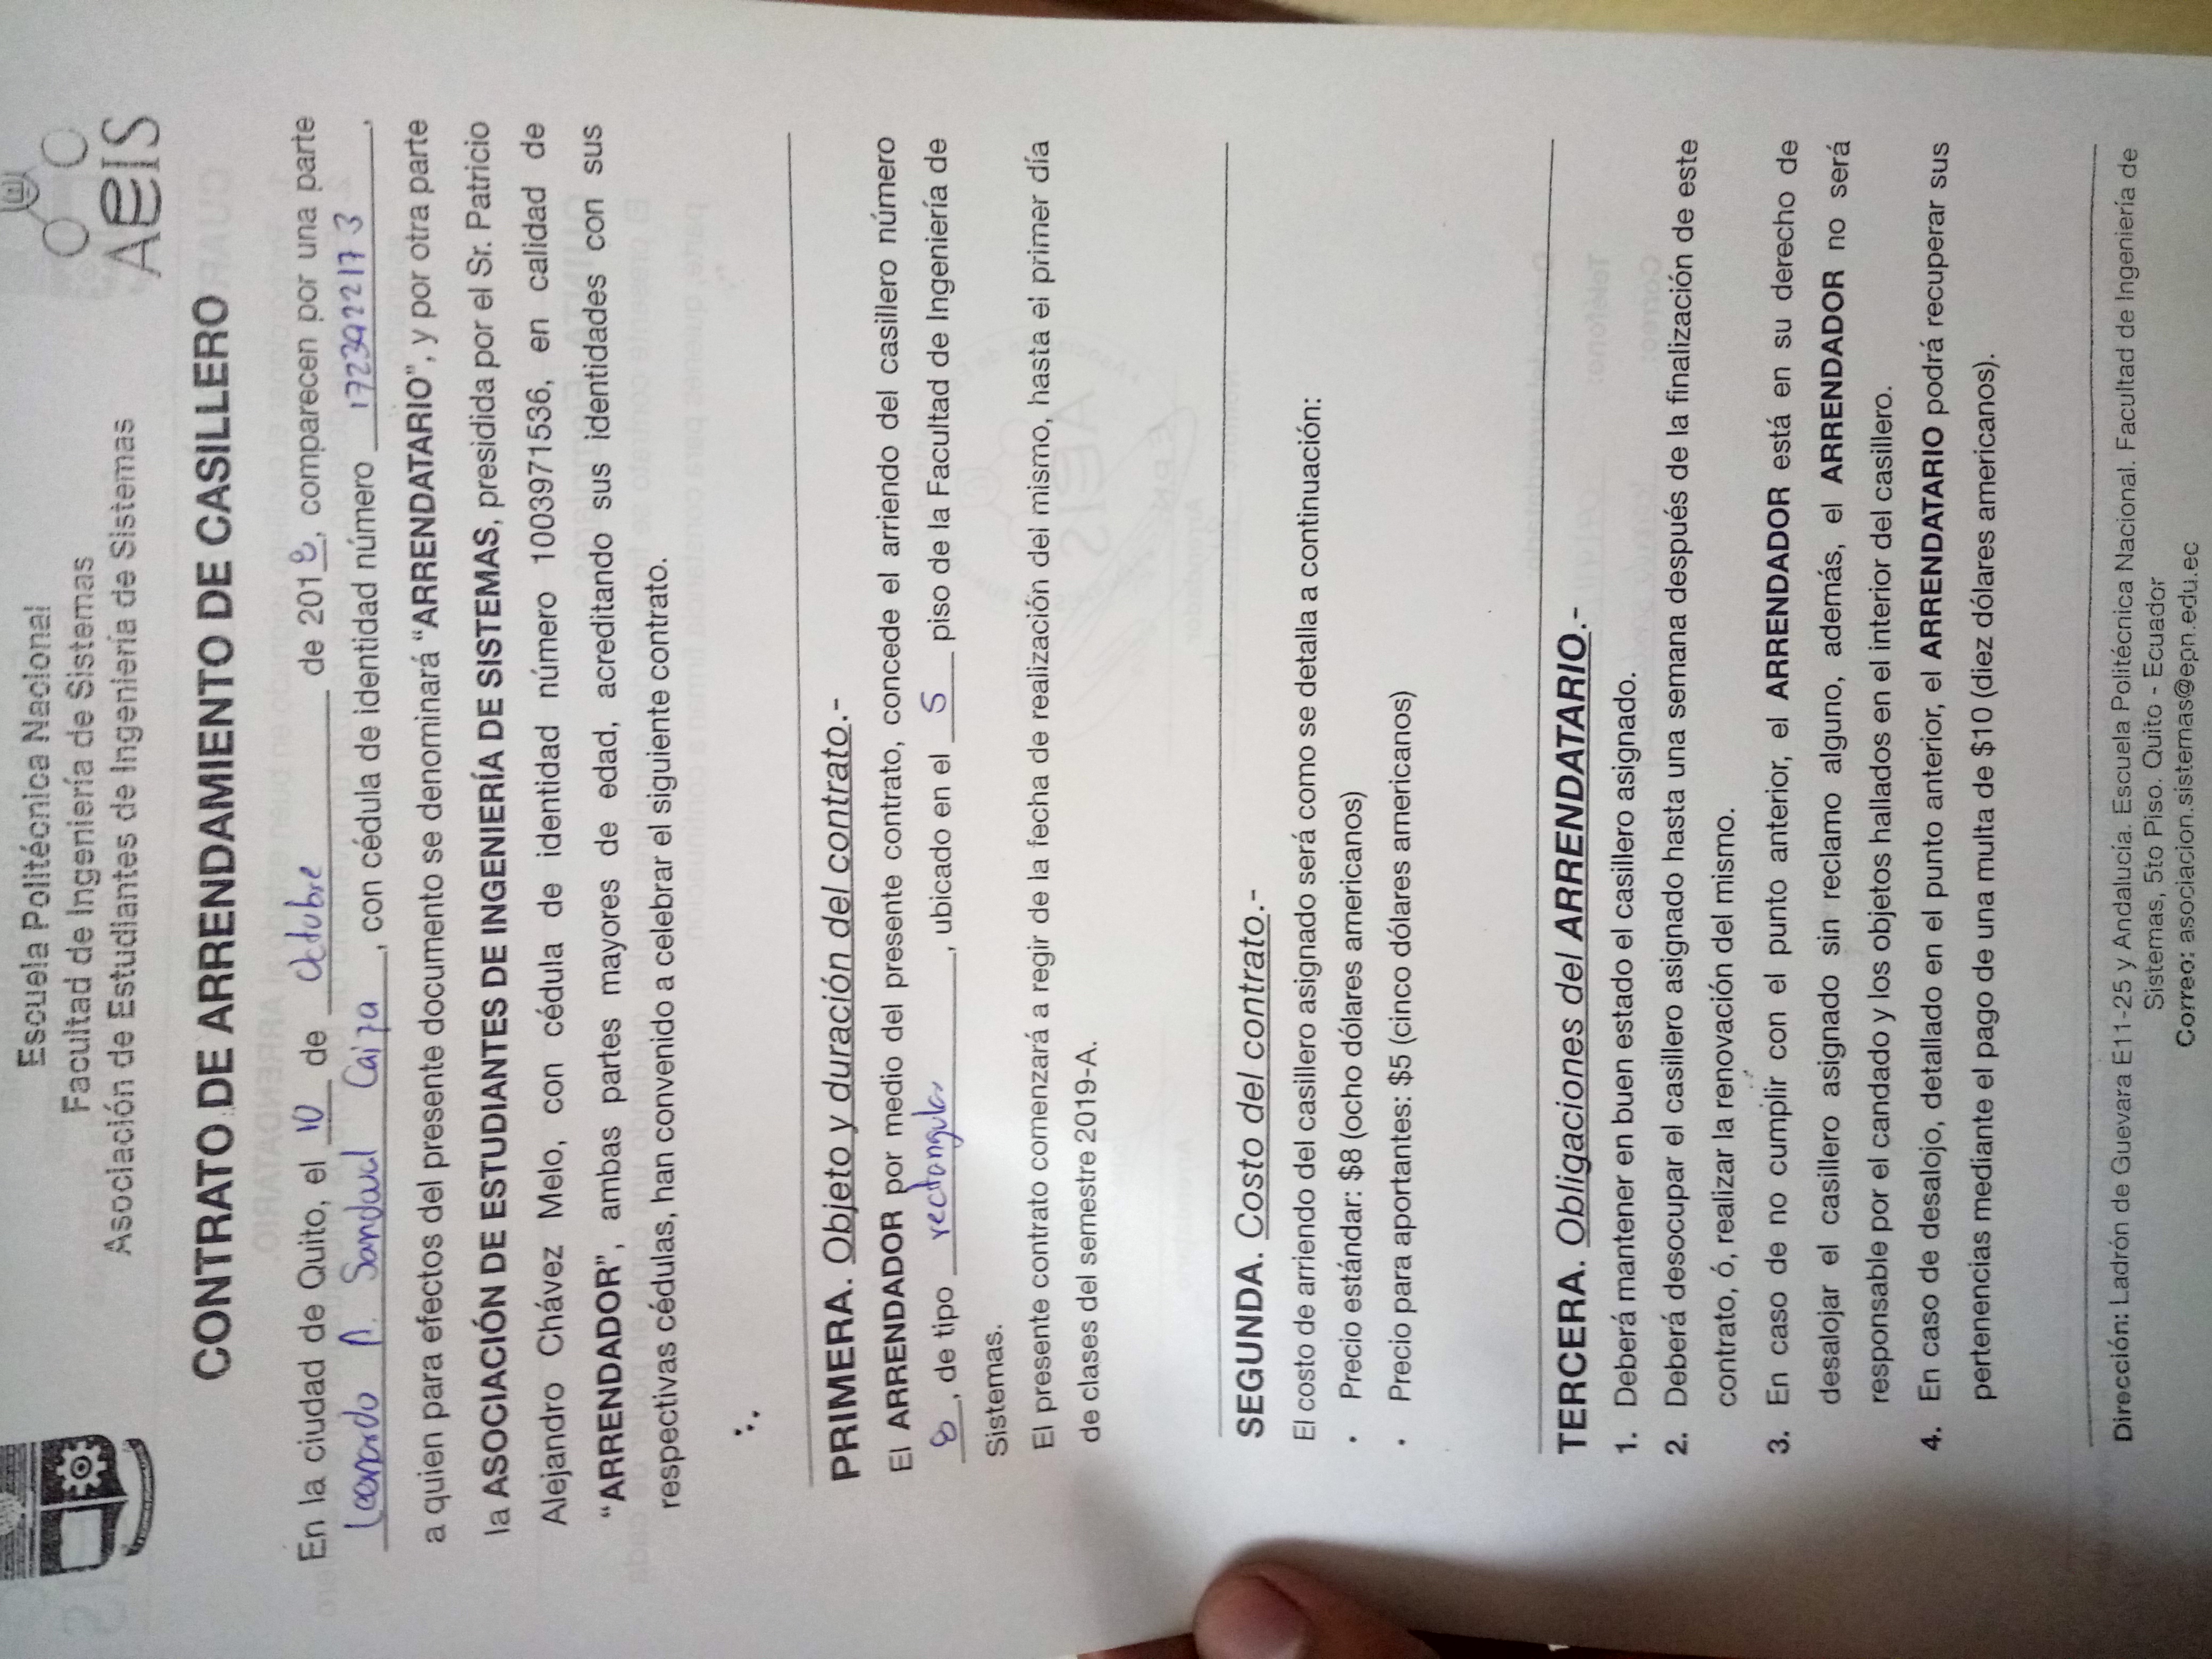 Escuela Politécnica Nacional
Facultad de Ingeniería de Sistemas
Asociación de Estudiantes de Ingeniería de Sistemas
AEIS
CONTRATO DE ARRENDAMIENTO DE CASILLERO
En la ciudad de Quito, el 10 de Octubre de 2018, comparecen por una parte
Leonardo A. Sandoval Caiza, con cédula de identidad número 1723922173,
a quien para efectos del presente documento se denominará “ARRENDATARIO”, y por otra parte
la ASOCIACIÓN DE ESTUDIANTES DE INGENIERÍA DE SISTEMAS, presidida por el Sr. Patricio
Alejandro Chávez Melo, con cédula de identidad número 1003971536, en calidad de
“ARRENDADOR”, ambas partes mayores de edad, acreditando sus identidades con sus
respectivas cédulas, han convenido a celebrar el siguiente contrato.
PRIMERA. Objeto y duración del contrato.-
El ARRENDADOR por medio del presente contrato, concede el arriendo del casillero número
8, de tipo rectangular, ubicado en el 5 piso de la Facultad de Ingeniería de
Sistemas.
El presente contrato comenzará a regir de la fecha de realización del mismo, hasta el primer día
de clases del semestre 2019-A.
SEGUNDA. Costo del contrato.-
El costo de arriendo del casillero asignado será como se detalla a continuación:
• Precio estándar: $8 (ocho dólares americanos)
• Precio para aportantes: $5 (cinco dólares americanos)
TERCERA. Obligaciones del ARRENDATARIO.-
1. Deberá mantener en buen estado el casillero asignado.
2. Deberá desocupar el casillero asignado hasta una semana después de la finalización de este
contrato, ó, realizar la renovación del mismo.
3. En caso de no cumplir con el punto anterior, el ARRENDADOR está en su derecho de
desalojar el casillero asignado sin reclamo alguno, además, el ARRENDADOR no será
responsable por el candado y los objetos hallados en el interior del casillero.
4. En caso de desalojo, detallado en el punto anterior, el ARRENDATARIO podrá recuperar sus
pertenencias mediante el pago de una multa de $10 (diez dólares americanos).
Dirección: Ladrón de Guevara E11-25 y Andalucía. Escuela Politécnica Nacional. Facultad de Ingeniería de
Sistemas, 5to Piso. Quito - Ecuador
Correo: asociacion.sistemas@epn.edu.ec